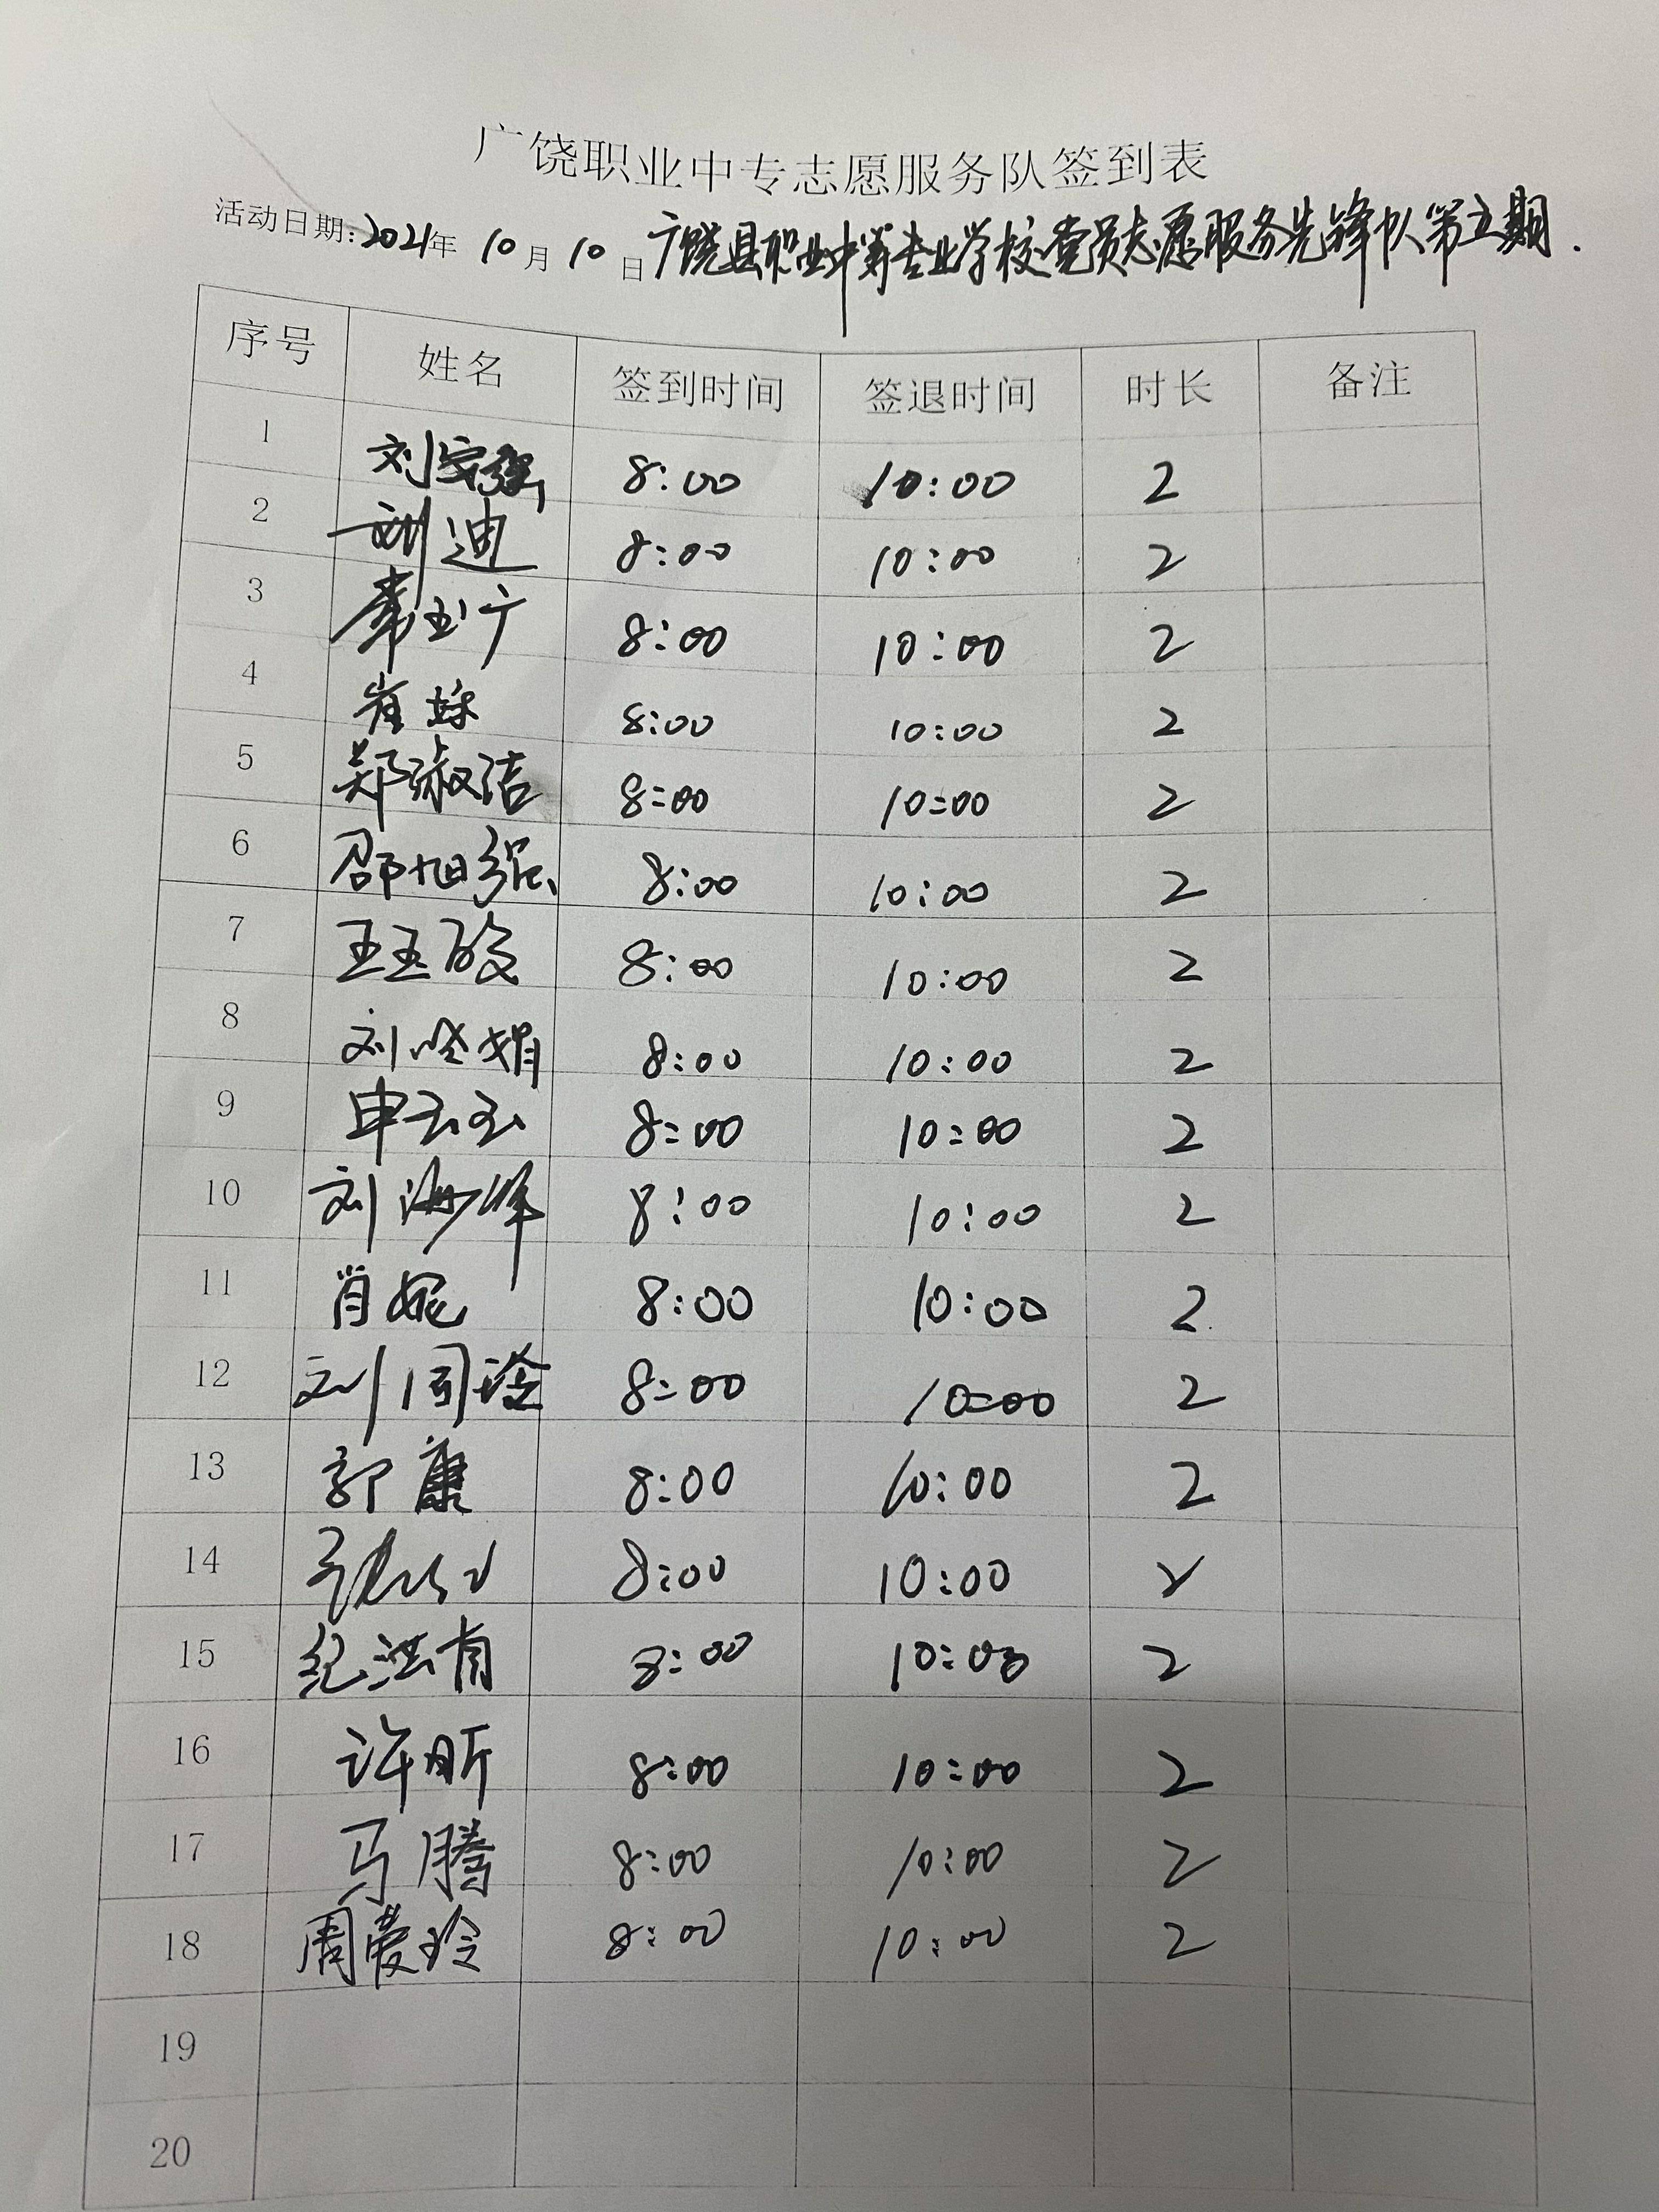 广饶职业中专志愿服务队签到表
活动日期:2021年10月10日广饶县职业中等专业学校党员志愿服务先锋队第五期.
序号 姓名 签到时间 签退时间 时长 备注
1 刘安强 8:00 10:00 2
2 刘迪 8:00 10:00 2
3 8:00 10:00 2
4 崔 8:00 10:00 2
5 郑淑洁 8:00 10:00 2
6 邵旭强 8:00 10:00 2
7 王玉 8:00 10:00 2
8 刘 娟 8:00 10:00 2
9 申玉玉 8:00 10:00 2
10 刘海峰 8:00 10:00 2
11 肖妮 8:00 10:00 2
12 刘同玲 8:00 10:00 2
13 郭康 8:00 10:00 2
14 8:00 10:00 2
15 纪洪有 8:00 10:00 2
16 许昕 8:00 10:00 2
17 马腾 8:00 10:00 2
18 周爱玲 8:00 10:00 2
19
20